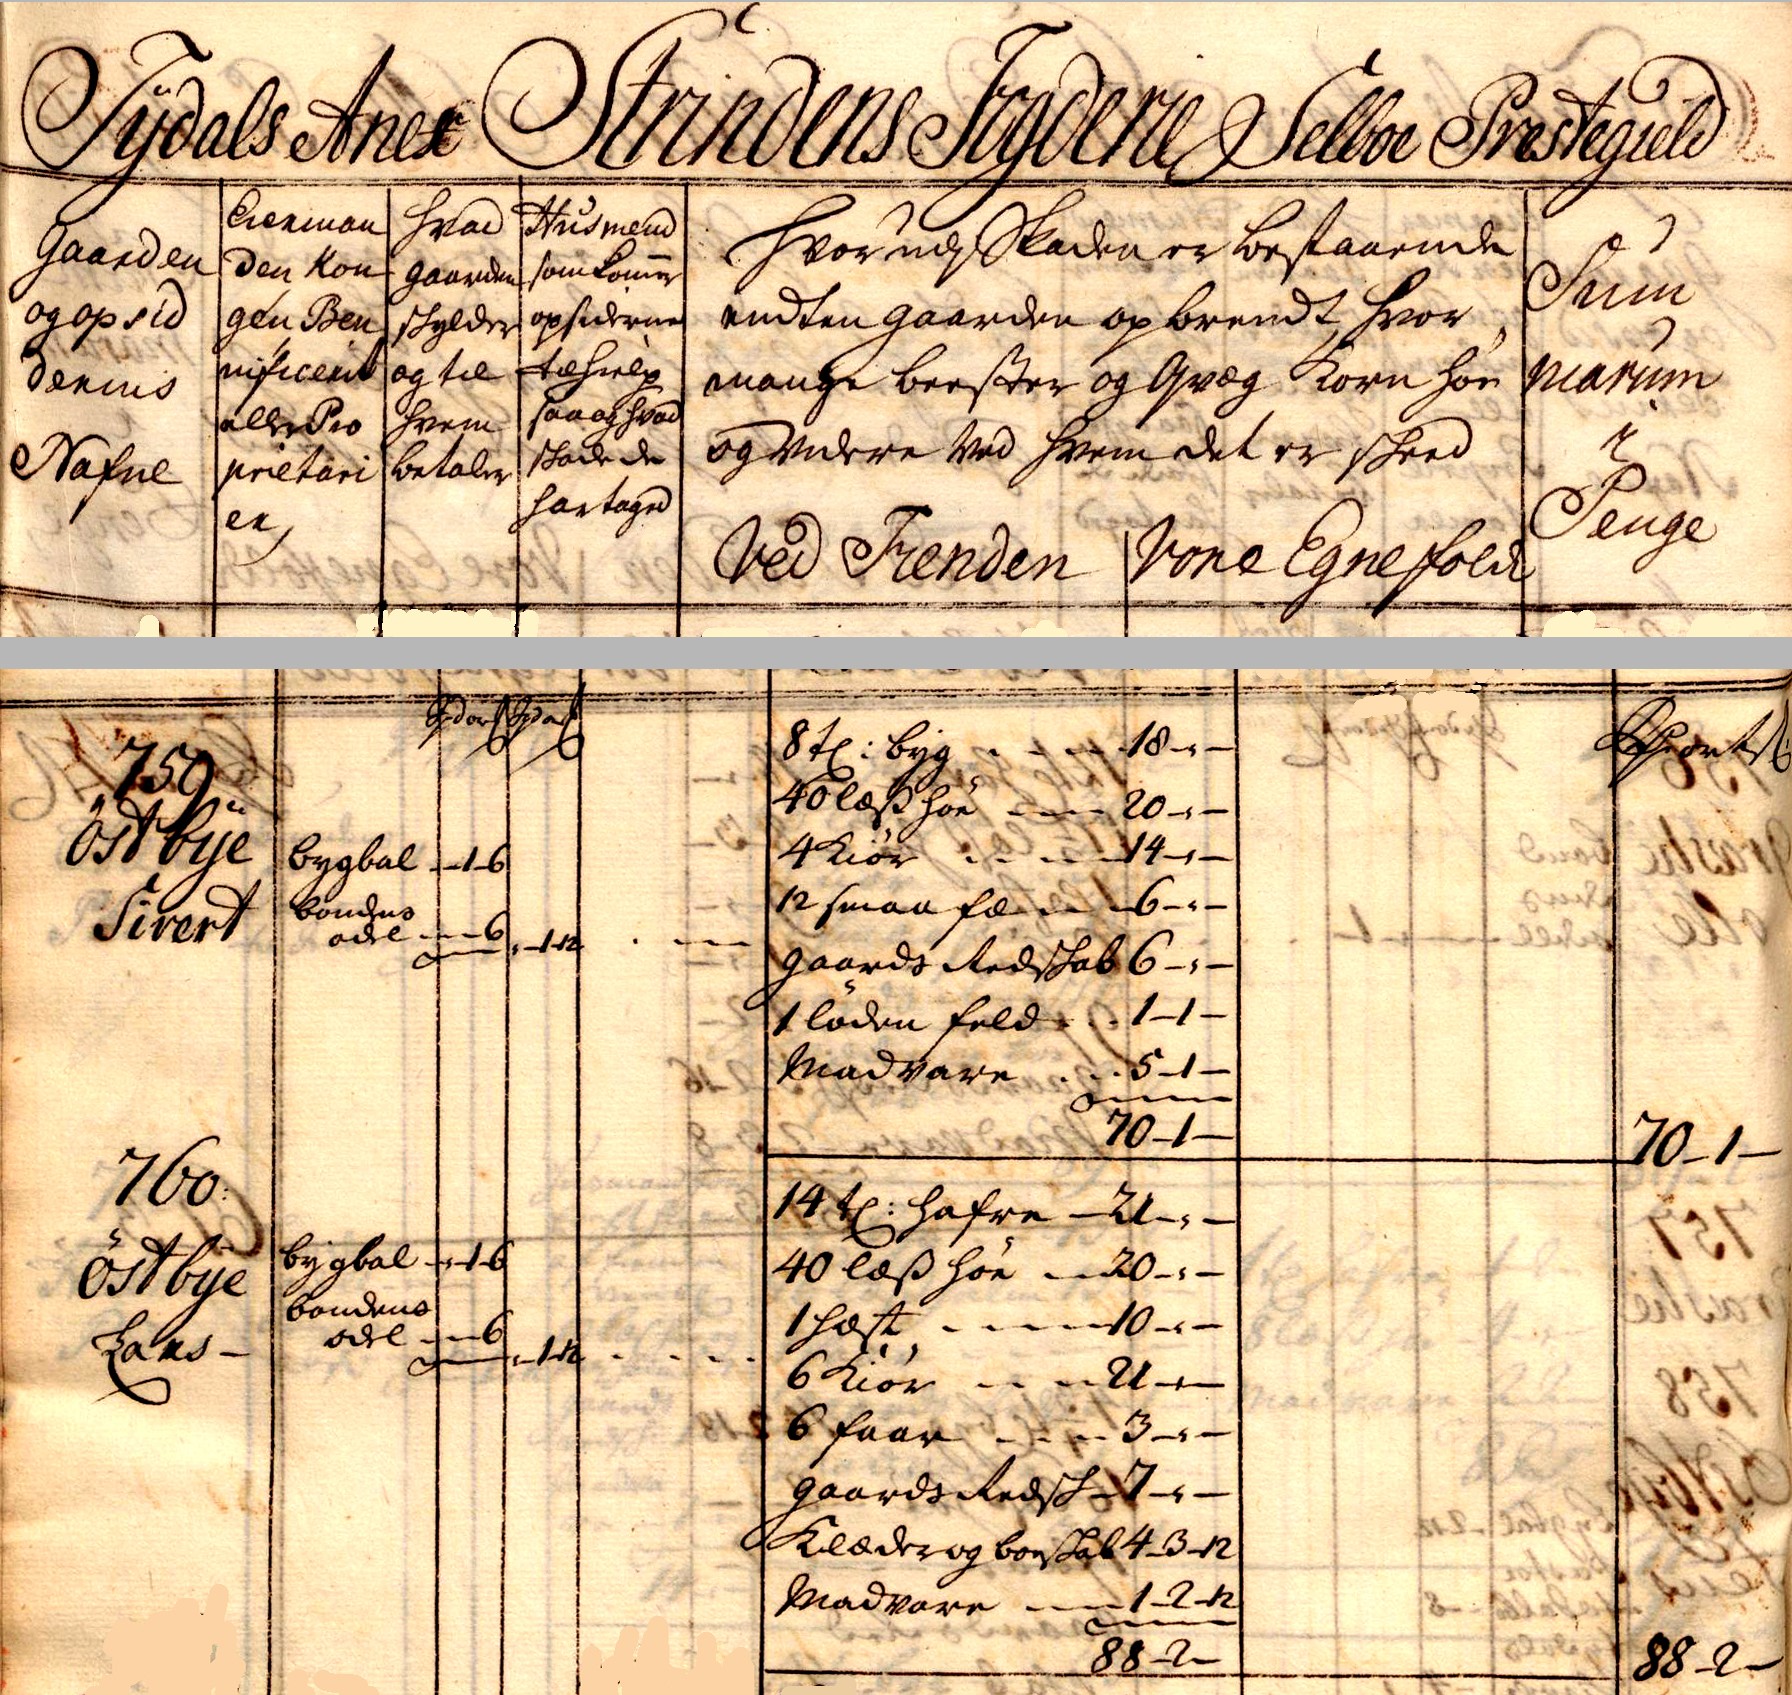 Tÿdals Anex Strindens Fogderie Selboe Prestegield
Gaarden
og opsid
dernis
Nafne
Eierman
den Kon
gen Ben
nificerit
eller Pro
prietari
er,
hvad
gaarden
skylder
og til
hvem
betaler
Husmend
som komer
opsiderne
til hielp
saa og hvad
skade de
har taged
Hvor udj Skaden er bestaaende
endten gaarden opbrendt, hvor
mange beester og Qvæg Korn höe
og videre ved hvem det er skeed
Ved Fienden
Vore Egne folck
Sum
marum
i
Penge
759
Östbÿe
Sivert
bygbol -1-6
bondens
odel -- 6
-1-12
8 tß: byg - - - 18 - -
40 læß höe --- 20 - -
4 Kiör - - - 14 - -
12 smaa fæ - - 6 - -
gaards Redskab 6 - -
1 loden feld - - 1-1-
Madvare - - - 5-1-
70-1-
70-1-
760:
Östbÿe
Lars -
bygbol -1-6
bondens
odel -- 6
-1-12
14 tß: hafre - 21 - -
40 læß höe - 20 - -
1 hæst, - - - 10 - -
6 Kiör - - - 21 - -
6 faar - - - 3 - -
gaards Redsk - 7 - -
Klæder og boeskab 4-3-12
Madvare - - 1-2-12
88-2-
88-2-